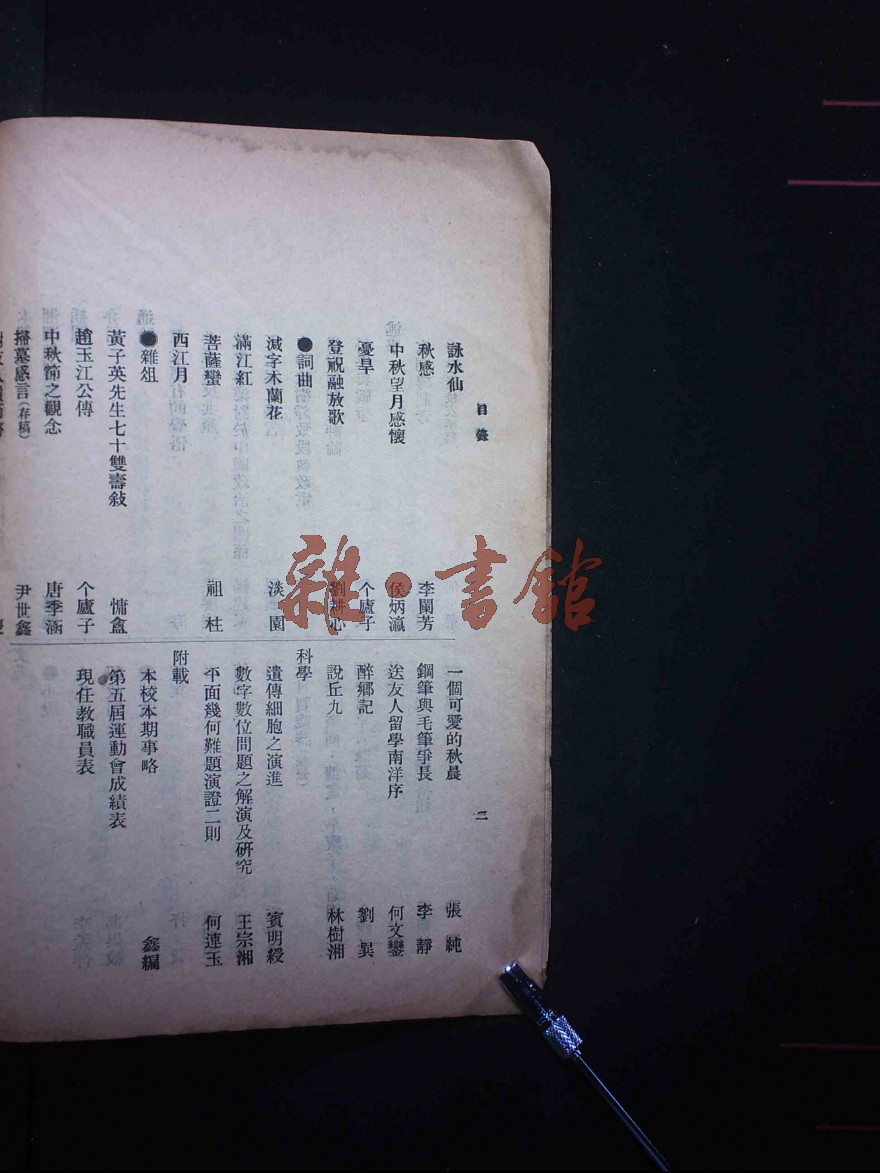 目錄
二
詠水仙
秋感 李闌芳
中秋望月感懷 侯炳瀛
憂旱 个廬子
登祝融放歌 劉耕心
●詞曲
減字木蘭花 淡園
滿江紅
菩薩蠻 祖桂
西江月
●雜俎
黃子英先生七十雙壽敍 慵盦
趙玉江公傳 个廬子
中秋節之觀念 唐季涵
掃墓感言(存稿) 尹世鑫
一個可愛的秋晨 張純
鋼筆與毛筆爭長 李靜
送友人留學南洋序 何文鑾
醉鄉記 劉異
說丘九 林樹湘
科學
遺傳細胞之演進 賓明綬
數字數位問題之解演及研究 王宗湘
平面幾何難題演證二則 何連玉
附載
本校本期事略 鑫編
第五屆運動會成績表
現任教職員表
雜·書館